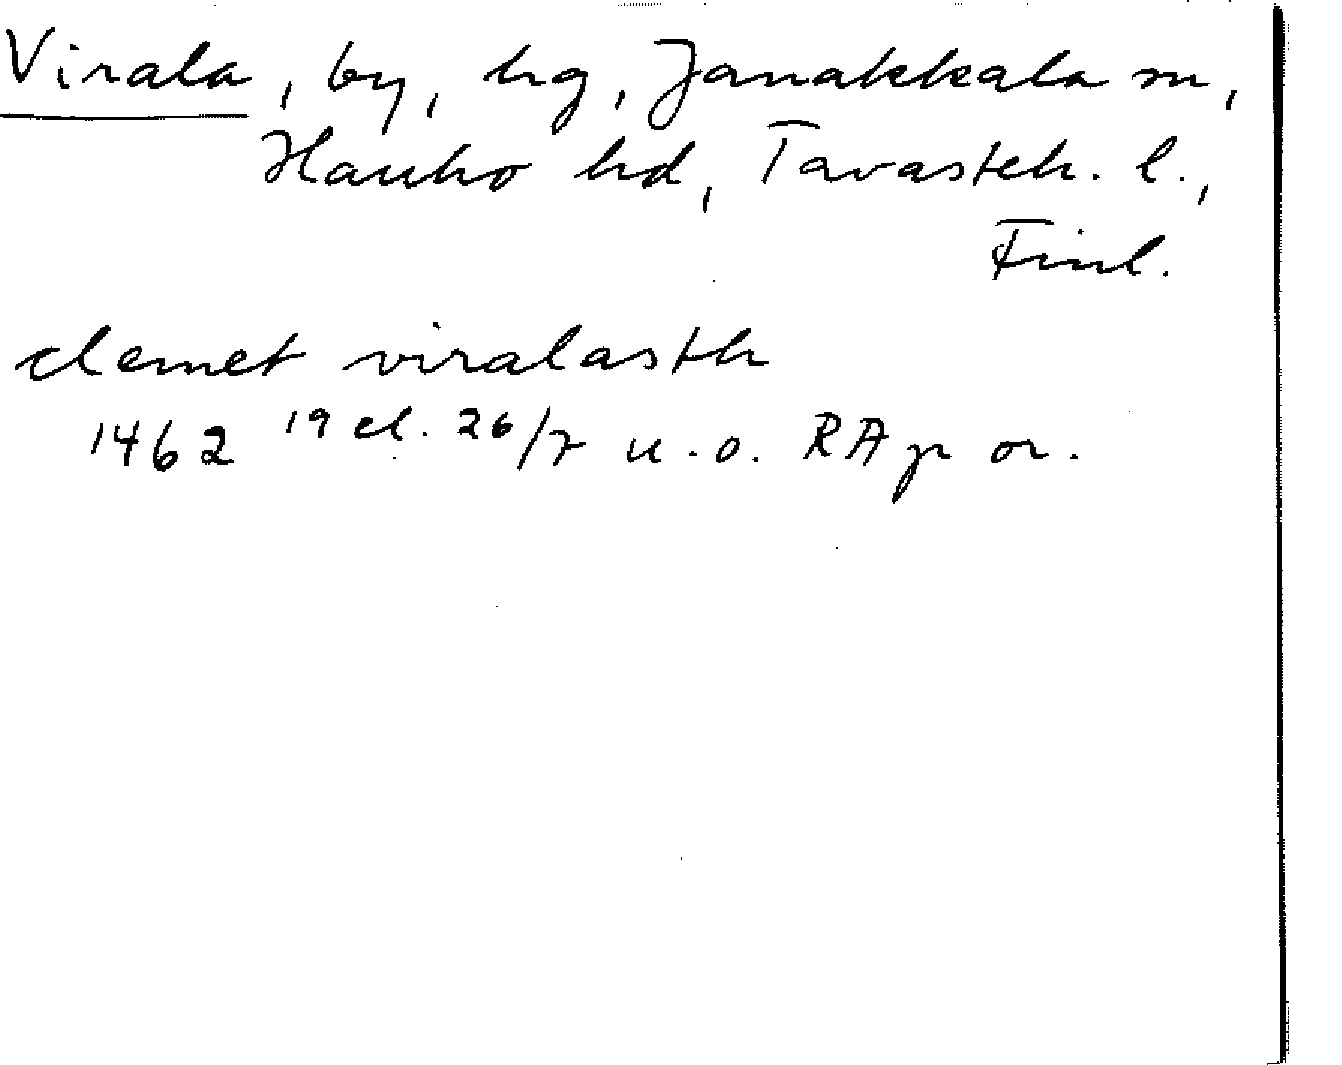 Virala, by, hg, Janakkala sn,
Hauho hd, Tavasteh. l.,
Finl.
clemet viralasth
1462 19 el. 26/7 u.o. RAp or.